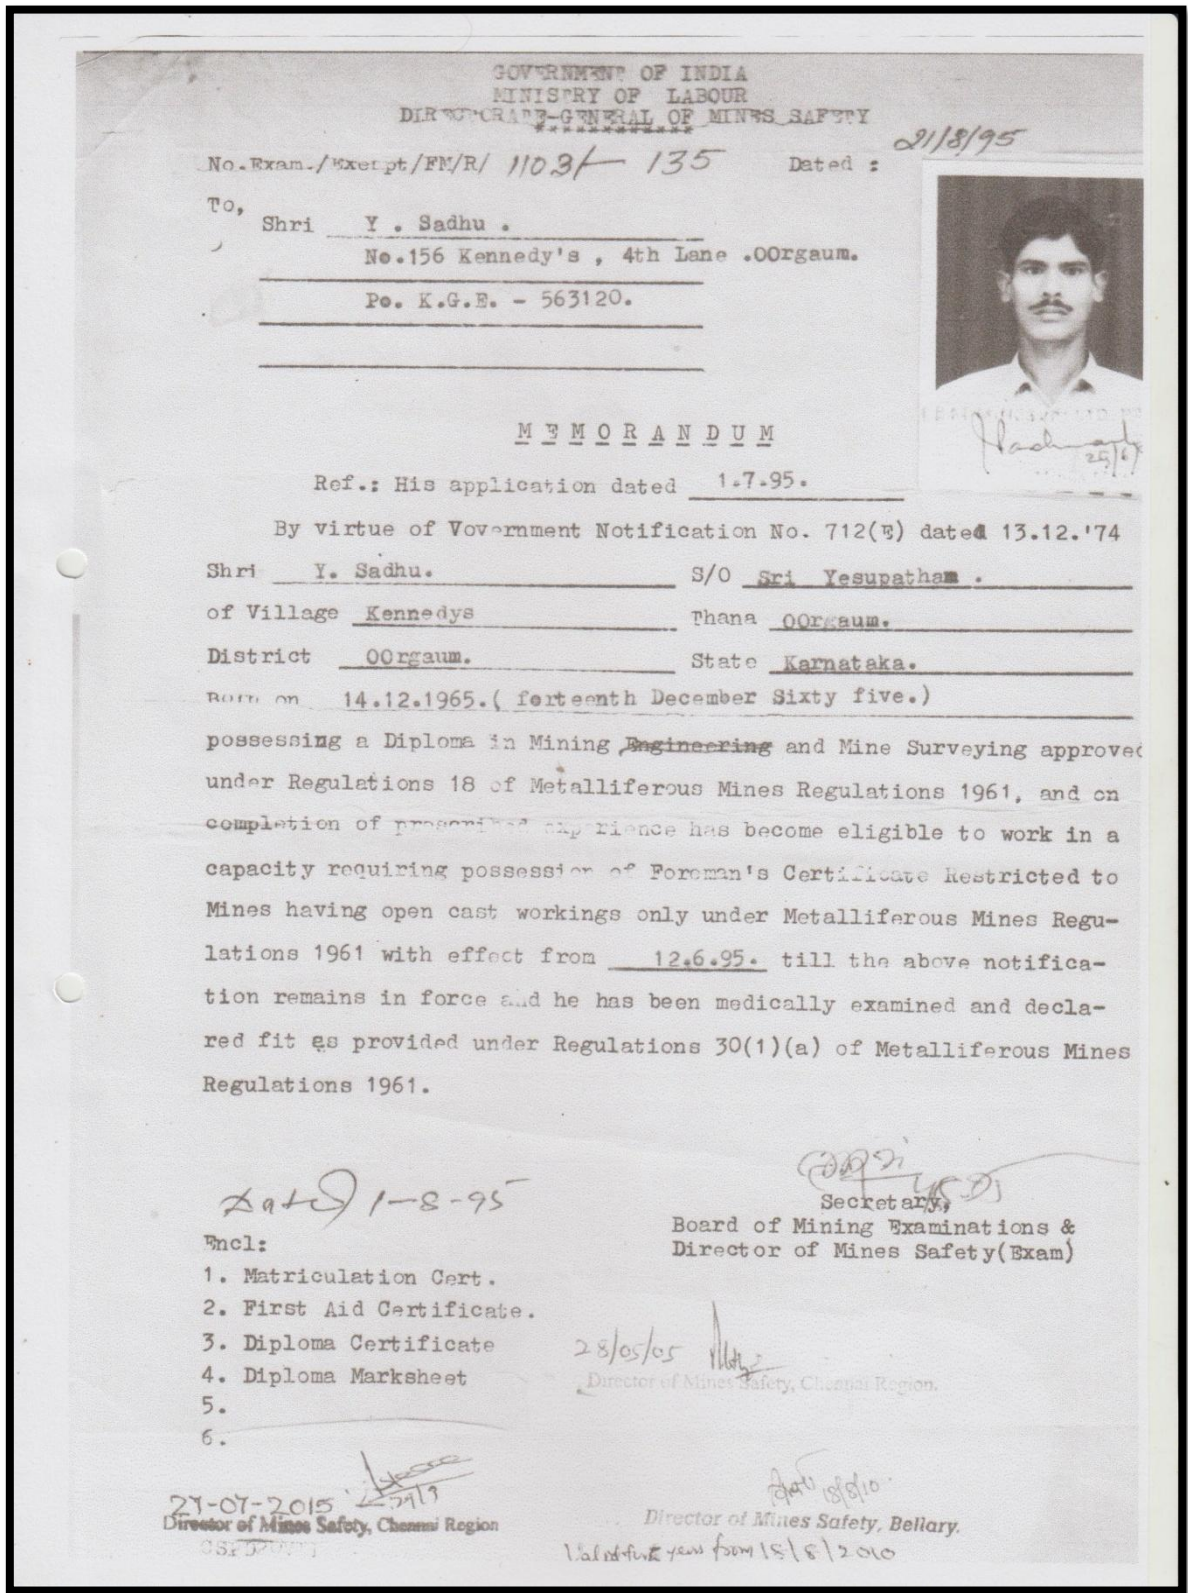 GOVERNMENT OF INDIA
MINISTRY OF LABOUR
DIRECTORATE-GENERAL OF MINES SAFETY
21/8/95
No.Exam./Exempt/FM/R/ 1103/- 135 Dated :
To,
Shri Y . Sadhu .
No.156 Kennedy's , 4th Lane .OOrgaum.
Po. K.G.E. - 563120.
25/6/
MEMORANDUM
Ref.: His application dated 1.7.95.
By virtue of Vovernment Notification No. 712(E) dated 13.12.'74
Shri Y. Sadhu. S/O Sri Yesupatham .
of Village Kennedys Thana OOrgaum.
District OOrgaum. State Karnataka.
Born on 14.12.1965.( forteenth December Sixty five.)
possessing a Diploma in Mining Engineering and Mine Surveying approved
under Regulations 18 of Metalliferous Mines Regulations 1961, and on
completion of prescribed experience has become eligible to work in a
capacity requiring possession of Foreman's Certificate Restricted to
Mines having open cast workings only under Metalliferous Mines Regu-
lations 1961 with effect from 12.6.95. till the above notifica-
tion remains in force and he has been medically examined and decla-
red fit as provided under Regulations 30(1)(a) of Metalliferous Mines
Regulations 1961.
Dated 1-8-95
Secretary,
Board of Mining Examinations &
Director of Mines Safety(Exam)
Encl:
1. Matriculation Cert.
2. First Aid Certificate.
3. Diploma Certificate
4. Diploma Marksheet
5.
6.
28/05/05
Director of Mines Safety, Chennai Region.
27-07-2015
Director of Mines Safety, Chennai Region
18/8/10
Director of Mines Safety, Bellary.
Valid for years from 18/8/2010